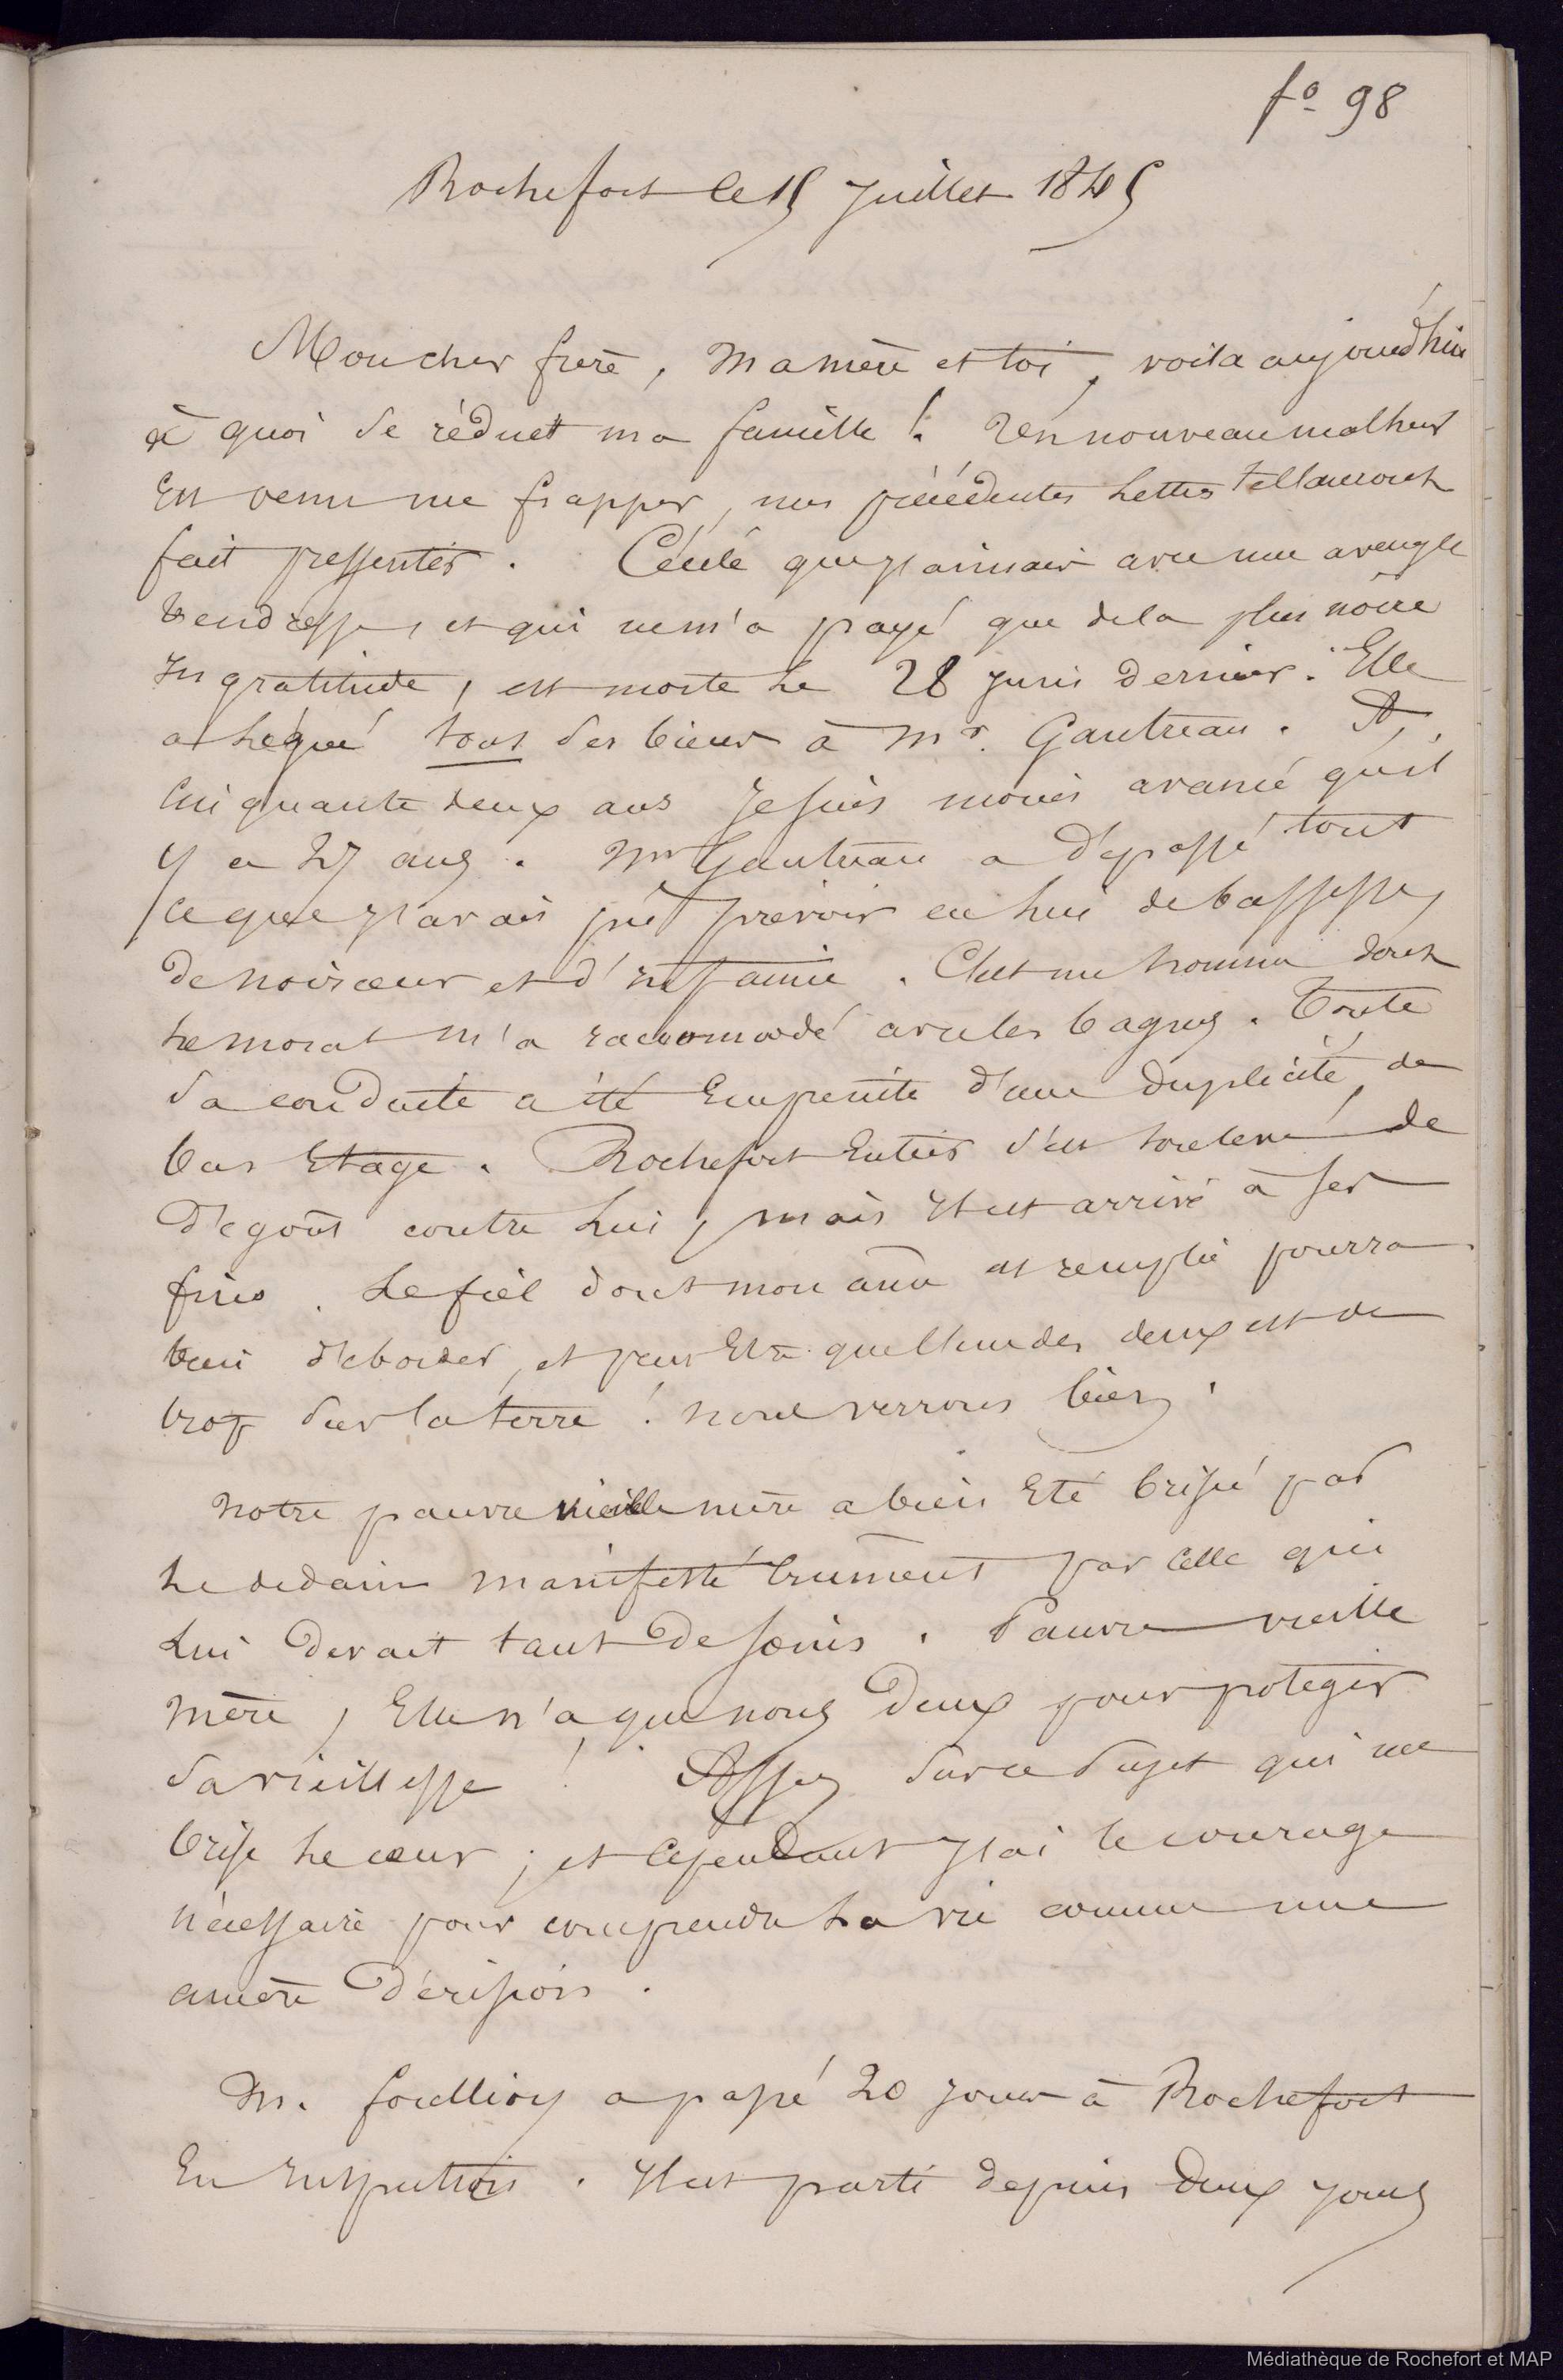 fº 98
Rochefort le 15 Juillet 1845
Mon cher frère, ma mère et toi, voila aujourd'hui
à quoi se réduit ma famille ! Un nouveau malheur
Est venu me frapper, mes précédentes lettres te l'auront
fait pressentir. Cécile que j'aimais avec une aveugle
tendresse, et qui ne m'a payé que de la plus noire
Ingratitude, est morte le 28 juin dernier. Elle
a légué tous ses biens à Mr. Gautreau. A
Cinquante deux ans je suis moins avancé qu'il
y a 27 ans. Mr Gautreau a dépassé tout
ce que j'avais pu prévoir en lui de bassesse,
de noirceur et d'infamie. C'est un homme dont
le moral m'a raccomodé avec les bagnes. Toute
sa conduite a été Empreinte d'une duplicité de
bas Etage. Rochefort Entier s'est soulevé de
dégoût contre lui, mais Il est arrivé à ses
fins. Le fiel dont mon âme est remplie pourra
bien déborder, et peut Etre que l'un des deux est de
trop sur la terre ! nous verrons bien.
Notre pauvre vieille mère a bien Eté brisée par
le dedain manifesté crument par celle qui
lui devait tant de soins. Pauvre vieille
mère, Elle n'a que nous deux pour proteger
sa vieillesse ! Assez sur ce sujet qui me
brise le cœur ; et cependant j'ai le courage
nécessaire pour comprendre la vie comme une
amère dérision.
M. foullioy a passé 20 jours à Rochefort
En Inspection. Il est parti depuis deux jours
Médiathèque de Rochefort et MAP